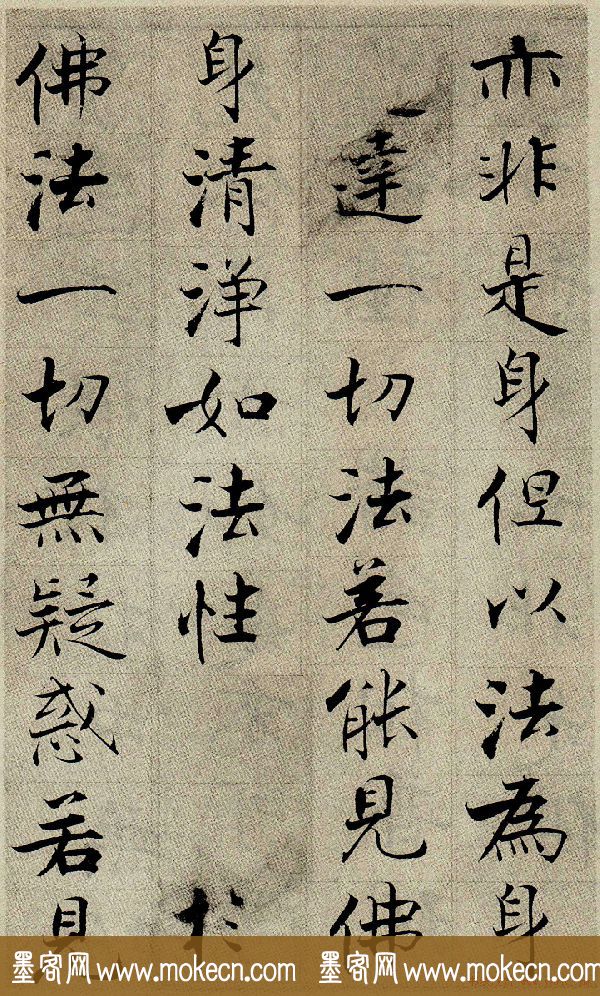 亦非是身但以法為身
達一切法若能見佛
身清淨如法性於
佛法一切無疑惑若見
墨客网 www.mokecn.com 墨客网 www.mokecn.com